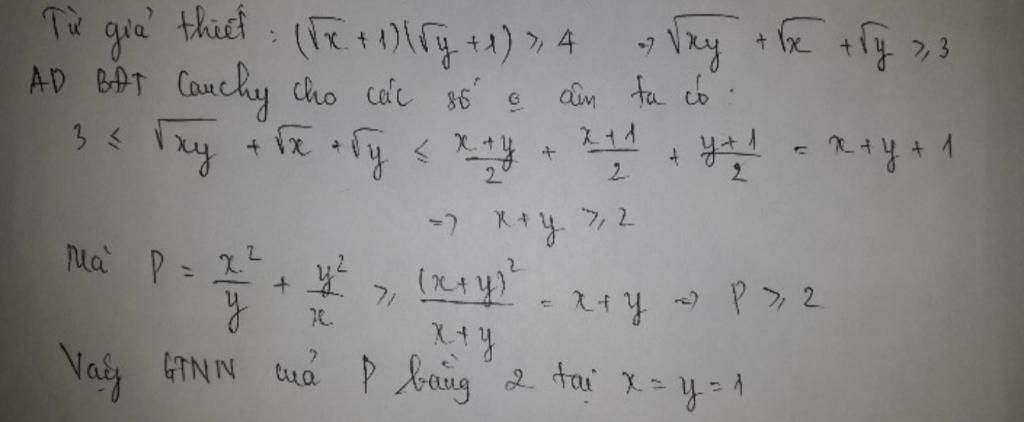 Từ giả thiết : (√x + 1)(√y + 1) ⩾ 4 => √xy + √x + √y ⩾ 3
AD BĐT Cauchy cho các số o âm ta có :
3 ≤ √xy + √x + √y ≤ (x+y)/2 + (x+1)/2 + (y+1)/2 = x + y + 1
=> x + y ⩾ 2
Mà P = x²/y + y²/x ⩾ (x+y)²/(x+y) = x + y => P ⩾ 2
Vậy GTNN của P bằng 2 tại x = y = 1